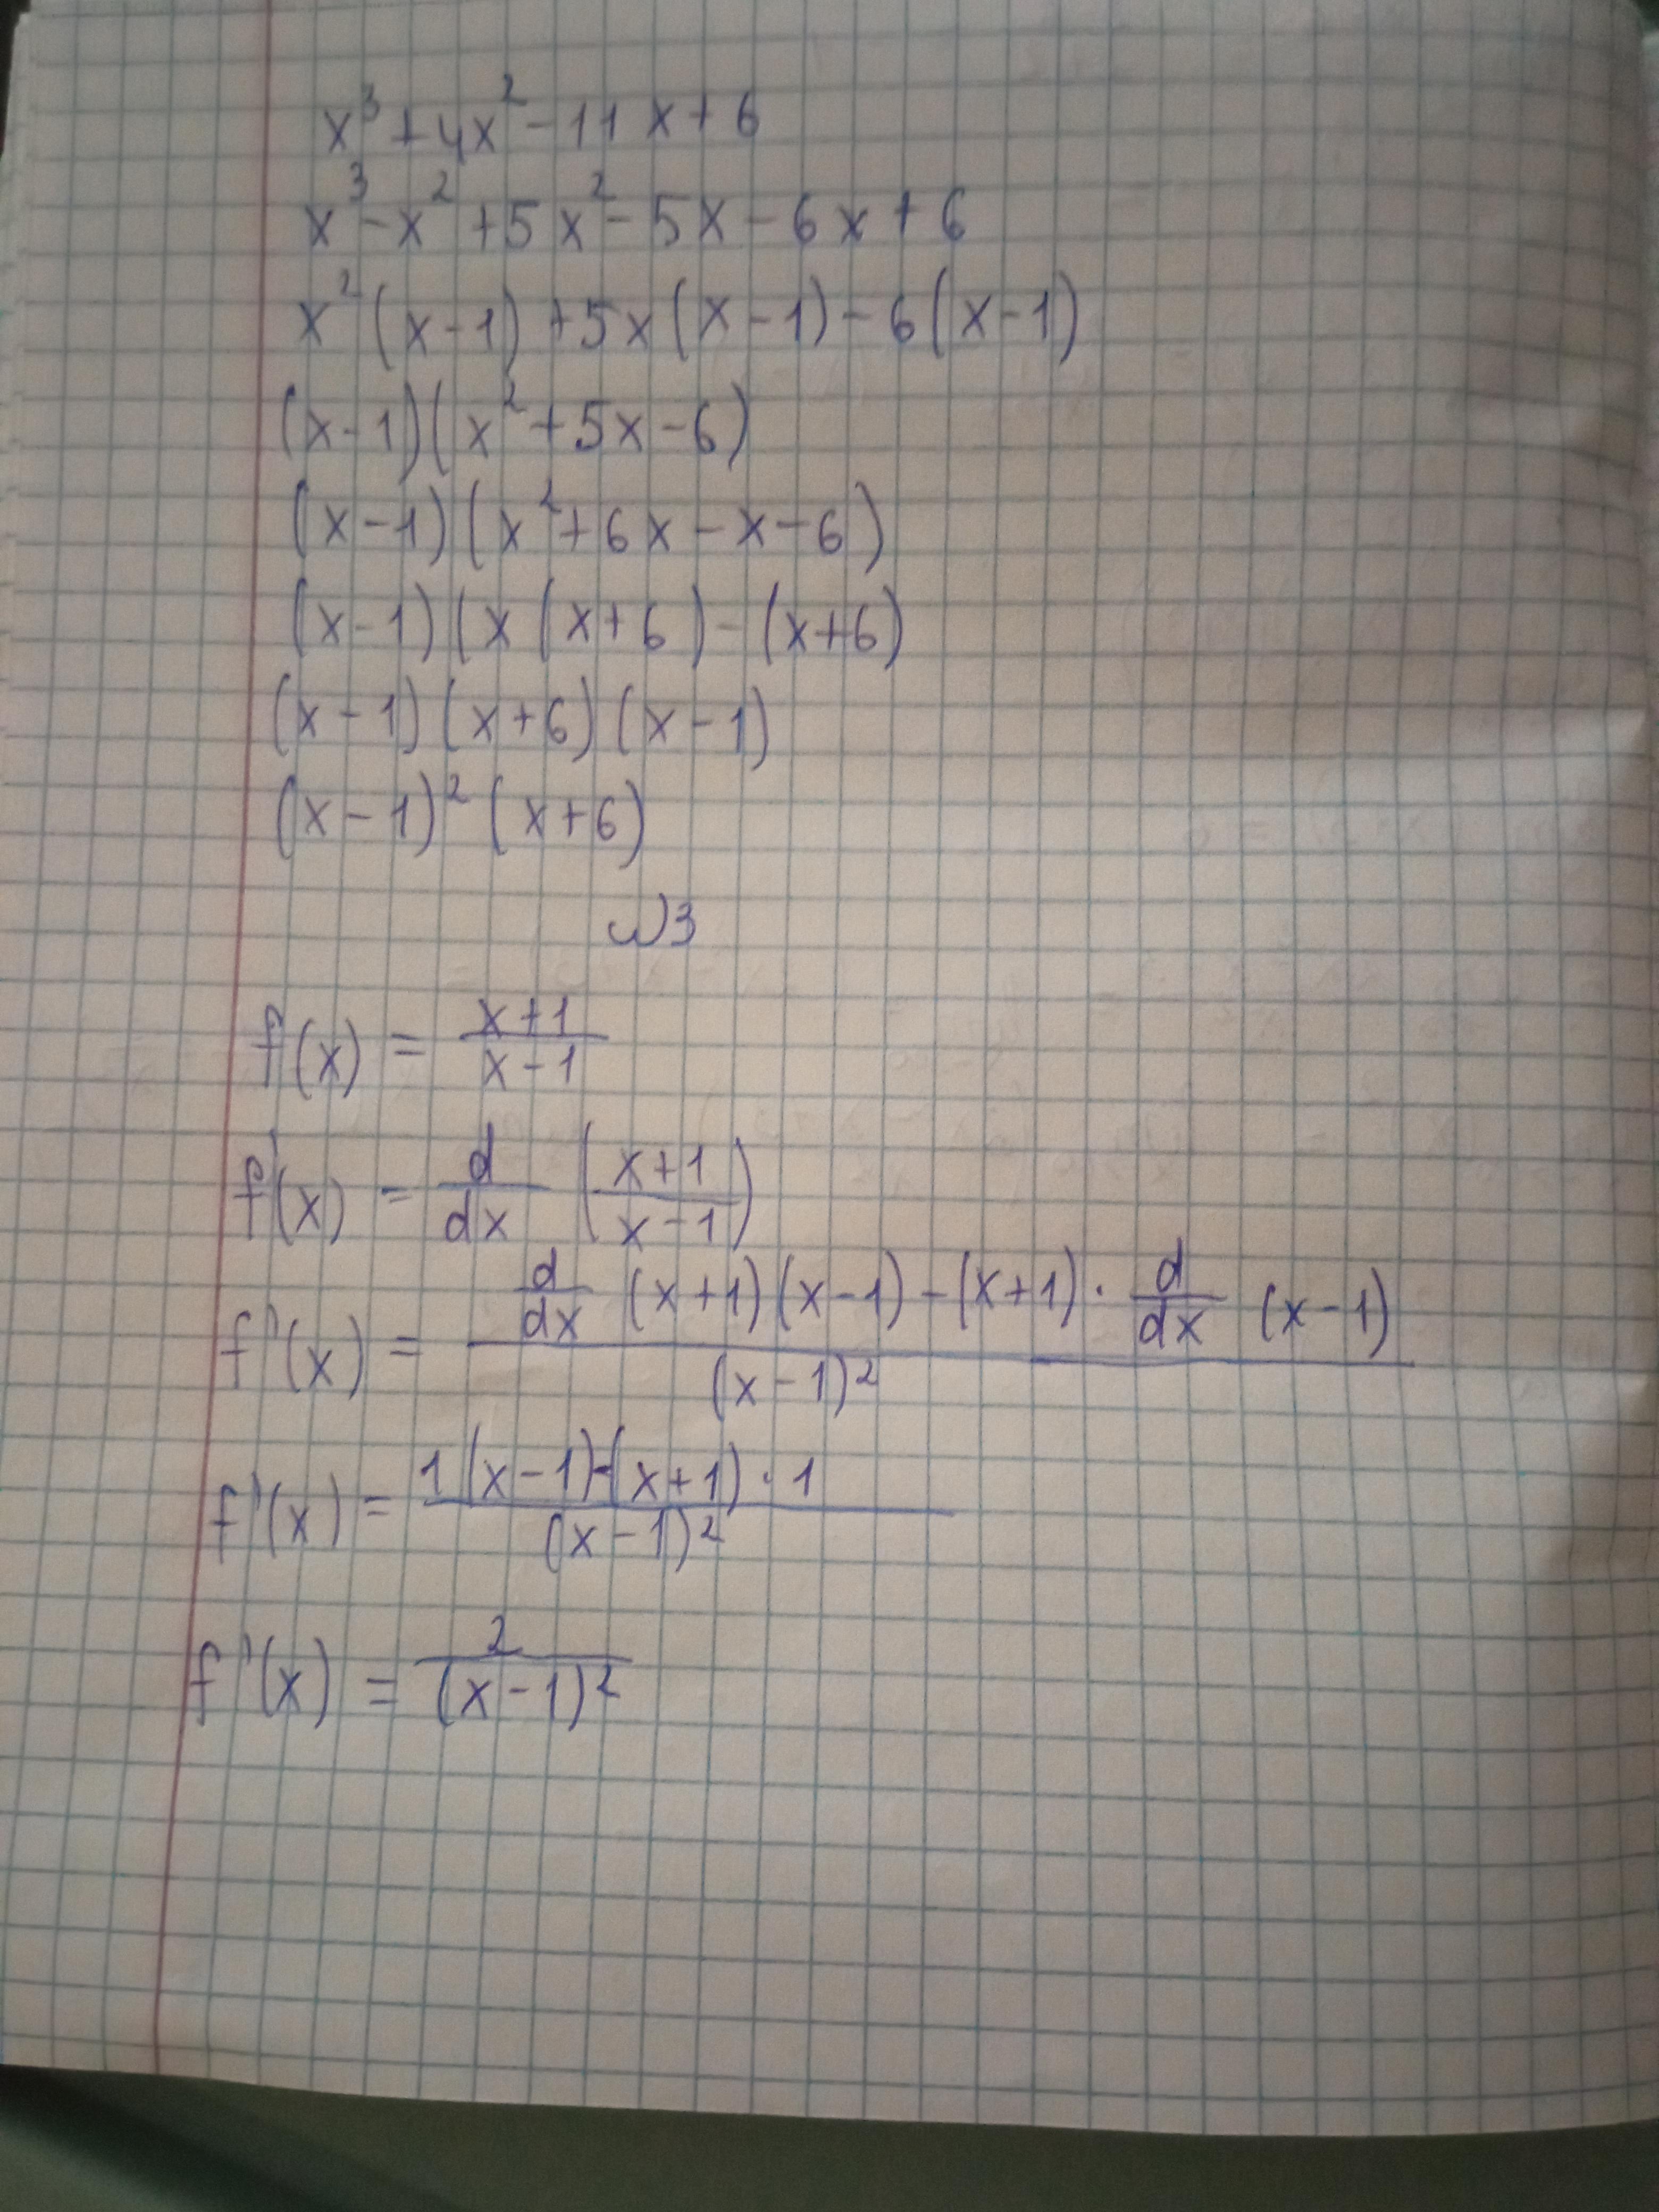 x³+4x²-11x+6
x³-x²+5x²-5x-6x+6
x²(x-1)+5x(x-1)-6(x-1)
(x-1)(x²+5x-6)
(x-1)(x²+6x-x-6)
(x-1)(x(x+6)-(x+6)
(x-1)(x+6)(x-1)
(x-1)²(x+6)
№3
f(x) = (x+1)/(x-1)
f'(x) = d/dx ((x+1)/(x-1))
f'(x) = (d/dx (x+1)(x-1)-(x+1)·d/dx (x-1))/(x-1)²
f'(x) = (1(x-1)-(x+1)·1)/(x-1)²
f'(x) = 2/(x-1)²